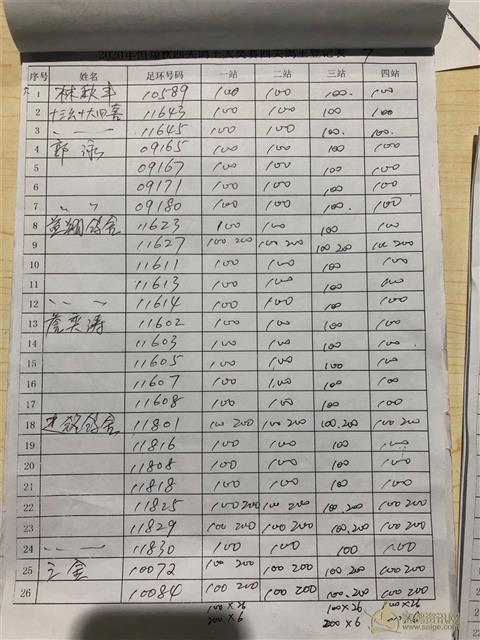 2020年 四关鸽王大奖赛四关鸽王登记表 7
序号 姓名 足环号码 一站 二站 三站 四站
1 林秋丰 10589 100 100 100. 100
2 11643 100 100 100 100
3 〃 — 11645 100 100 100. 100.
4 郭 泳 09165 100 100 100 100
5 09167 100 100 100 100
6 09171 100 100 100 100
7 〃 〃 09180 100 100 100. 100
8 鸽舍 11623 100 100 100 100
9 11627 100 200 100 200 100 200 100 200
10 11611 100 100 100 100
11 11613 100 100 100 100
12 〃 — 11614 100 100 100 100
13 奕涛 11602 100 100 100 100
14 11603 100 100 100 100
15 11605 100 100 100 100
16 11607 100 100 100 100
17 11608 100 100 100 100
18 鸽舍 11801 100 200 100 200 100.200 100 200
19 11816 100 100 100 100
20 11808 100 100 100 100
21 11818 100 100 100 100
22 11825 100 200 100 200 100.200 100 200
23 11829 100 200 100 200 100.200 100 200
24 〃 — 11830 100 100 100 100
25 金 10072 100 200 100 200 100.200 100 200
26 10084 100 200 100 200 100.200 100 200
100×26 100×26 100×26
200×6 200×6
赛鸽资讯网
www.saige.com